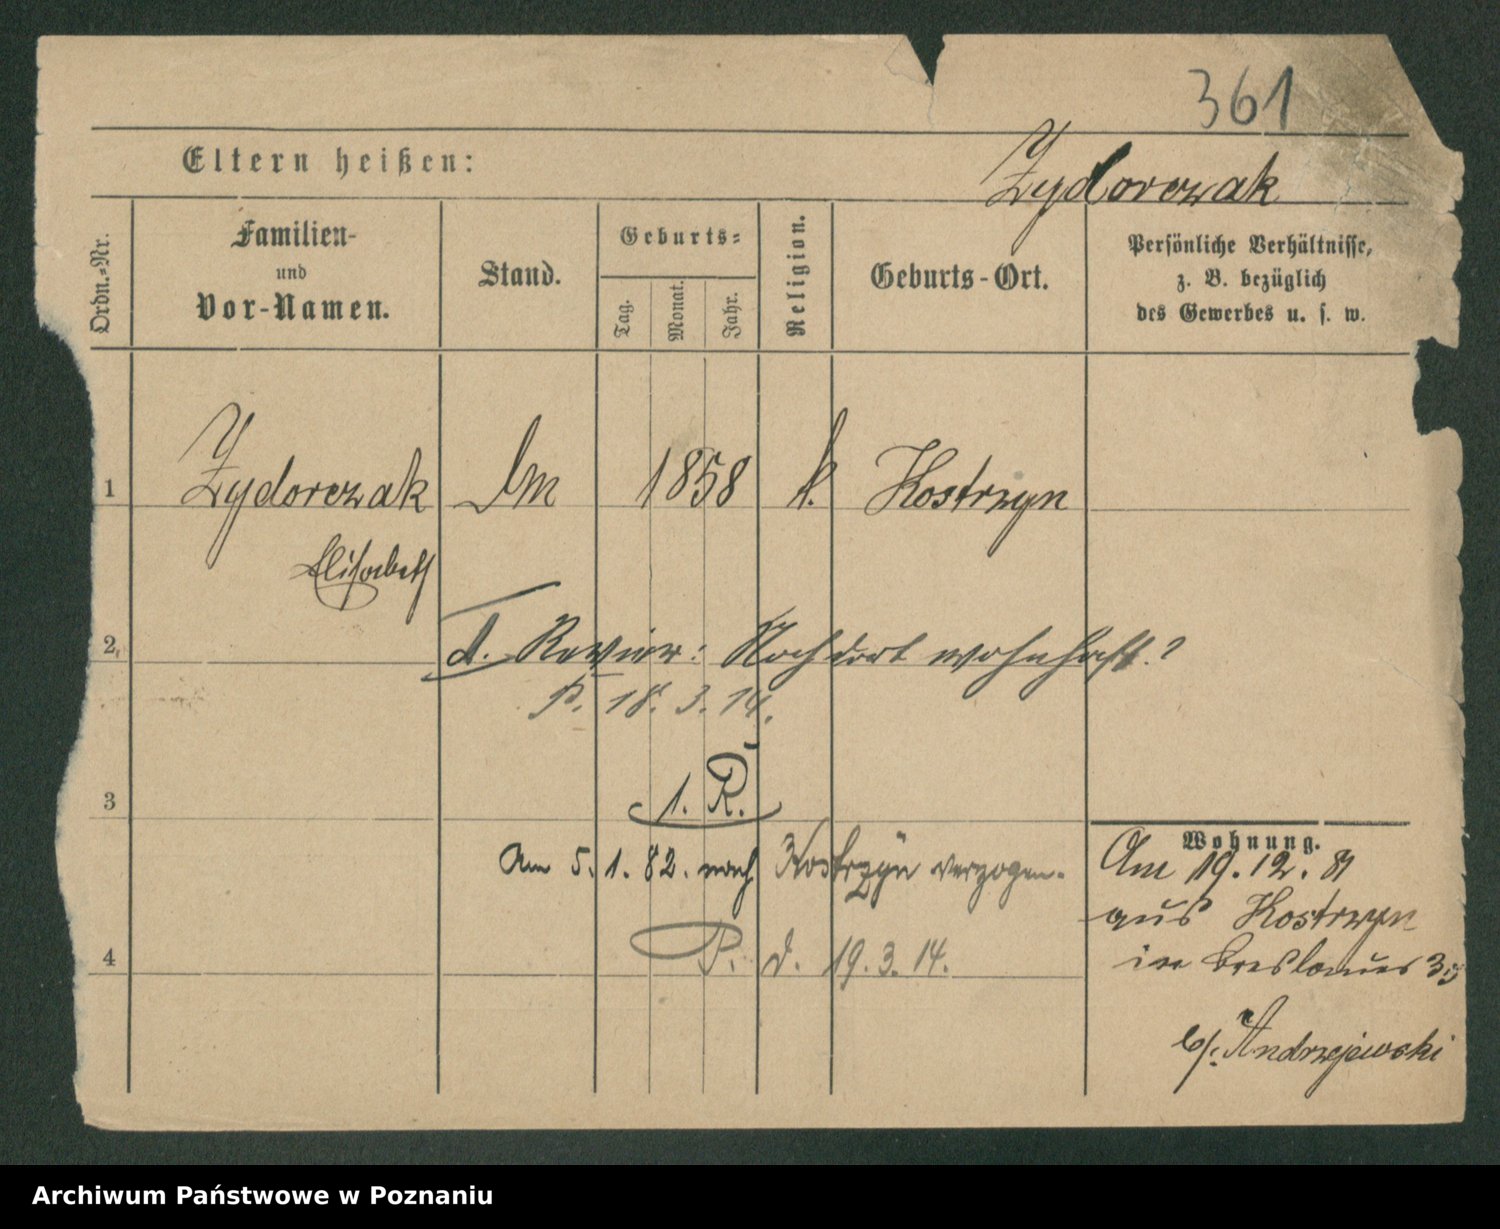 361
Eltern heißen:
Zydorczak
Ordn.-Nr.
Familien-
und
Vor-Namen.
Stand.
Geburts-
Tag.
Monat.
Jahr.
Religion.
Geburts-Ort.
Persönliche Verhältnisse,
z. B. bezüglich
des Gewerbes u. s. w.
1
Zydorczak
1858
k.
Kostrzyn
Elisabeth
2
Revier: Noch dort wohnhaft?
P. 18. 3. 14.
1. R.
3
Wohnung.
Am 5. 1. 82. nach Kostrzyn verzogen.
Am 19. 12. 81
aus Kostrzyn
in Breslauer 35
P. d. 19. 3. 14.
4
b/. Andrzejewski
Archiwum Państwowe w Poznaniu